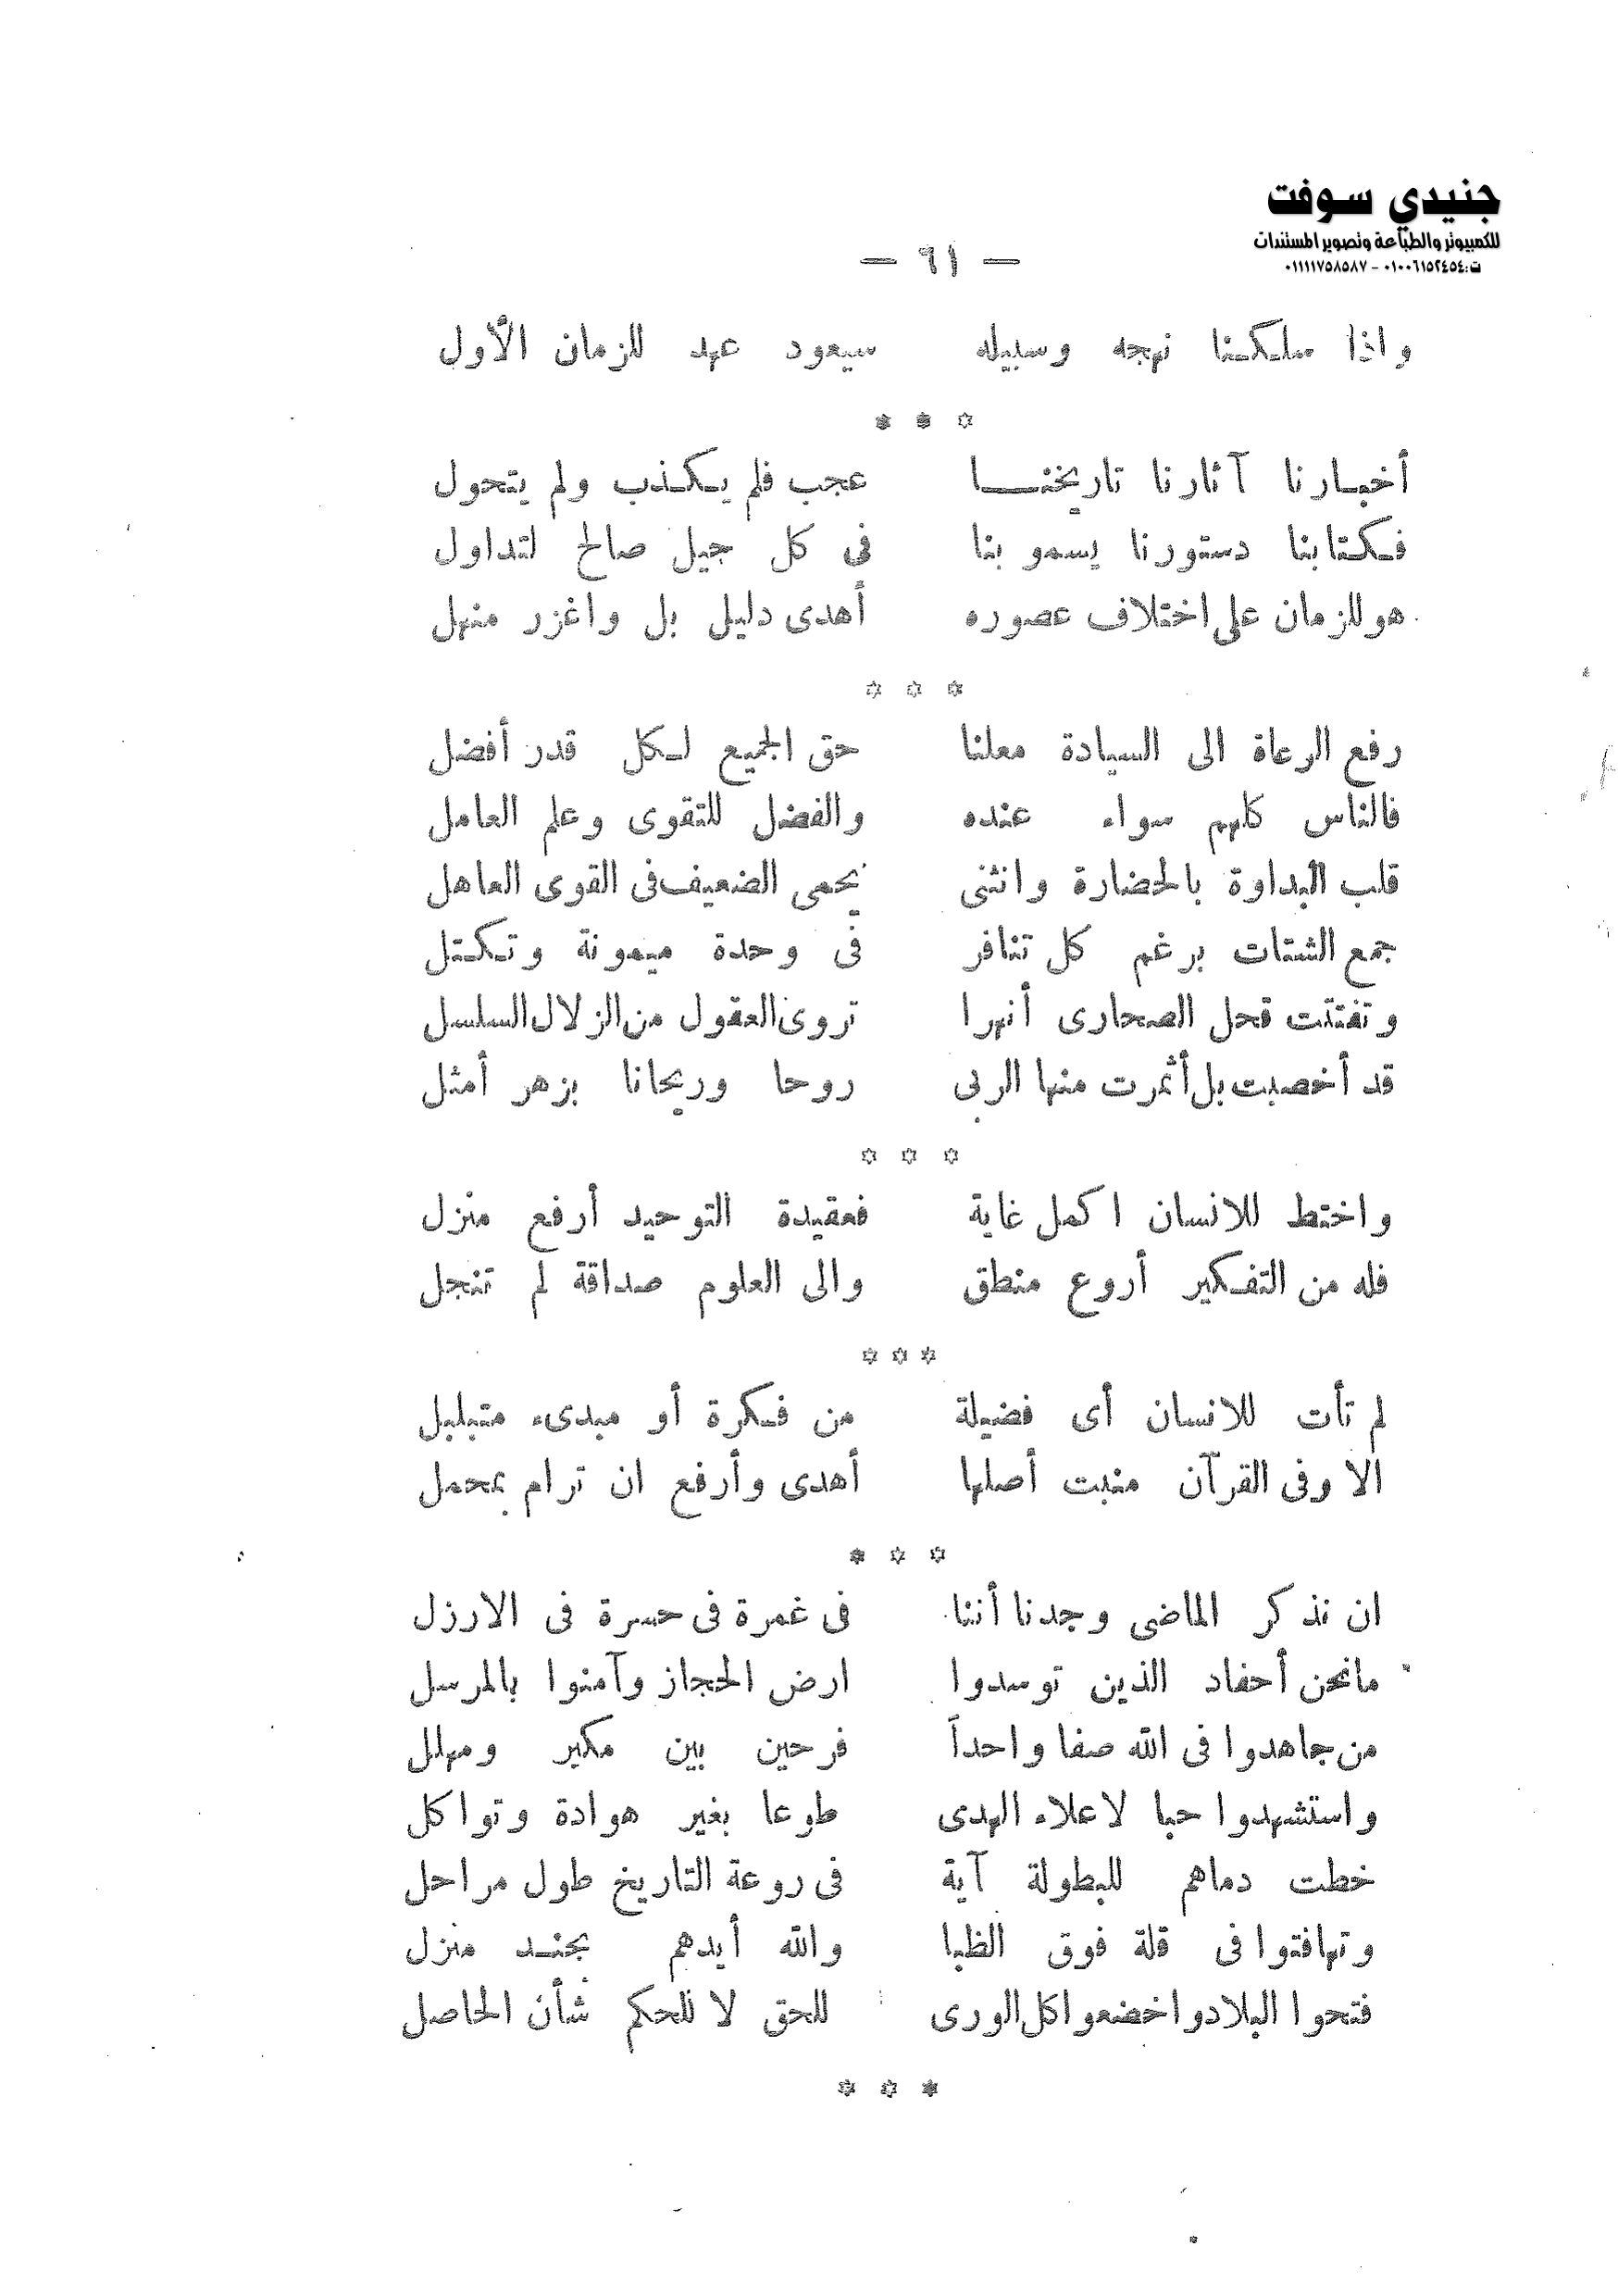 جنيدي سوفت
للكمبيوتر والطباعة وتصوير المستندات
ت: ٠١٠٠٦١٥٢٤٥٤ - ٠١١١١٧٥٨٥٨٧
— ٦١ —
واذا سلكنا نهجه وسبيله سيعود عهد للزمان الأول
* * *
أخبارنا آثارنا تاريخنا عجب فلم يكذب ولم يتحول
فكتابنا دستورنا يسمو بنا فى كل جيل صالح لتداول
هو للزمان على اختلاف عصوره أهدى دليل بل واغزر منهل
* * *
رفع الرعاة الى السيادة معلنا حق الجميع لكل قدر أفضل
فالناس كلهم سواء عنده والفضل للتقوى وعلم العامل
قلب البداوة بالحضارة وانثنى يحمى الضعيف فى القوى العاهل
جمع الشتات برغم كل تنافر فى وحدة ميمونة وتكتل
وتفتتت قحل الصحارى أنهرا تروى العقول من الزلال السلسل
قد أخصبت بل أثمرت منها الربى روحا وريحانا بزهر أمثل
* * *
واختط للانسان اكمل غاية فعقيدة التوحيد أرفع منزل
فله من التفكير أروع منطق والى العلوم صداقة لم تنجل
* * *
لم تأت للانسان أى فضيلة من فكرة أو مبدىء متبلبل
الا وفى القرآن منبت أصلها أهدى وأرفع ان ترام بمحمل
* * *
ان نذكر الماضى وجدنا أننا فى غمرة فى حسرة فى الارزل
مانحن أحفاد الذين توسدوا ارض الحجاز وآمنوا بالمرسل
من جاهدوا فى الله صفا واحداً فرحين بين مكبر ومهلل
واستشهدوا حبا لاعلاء الهدى طوعا بغير هوادة وتواكل
خطت دماهم للبطولة آية فى روعة التاريخ طول مراحل
وتهافتوا فى قلة فوق الظبا والله أيدهم بجند منزل
فتحوا البلاد واخضعوا كل الورى للحق لا للحكم شأن الحاصل
* * *